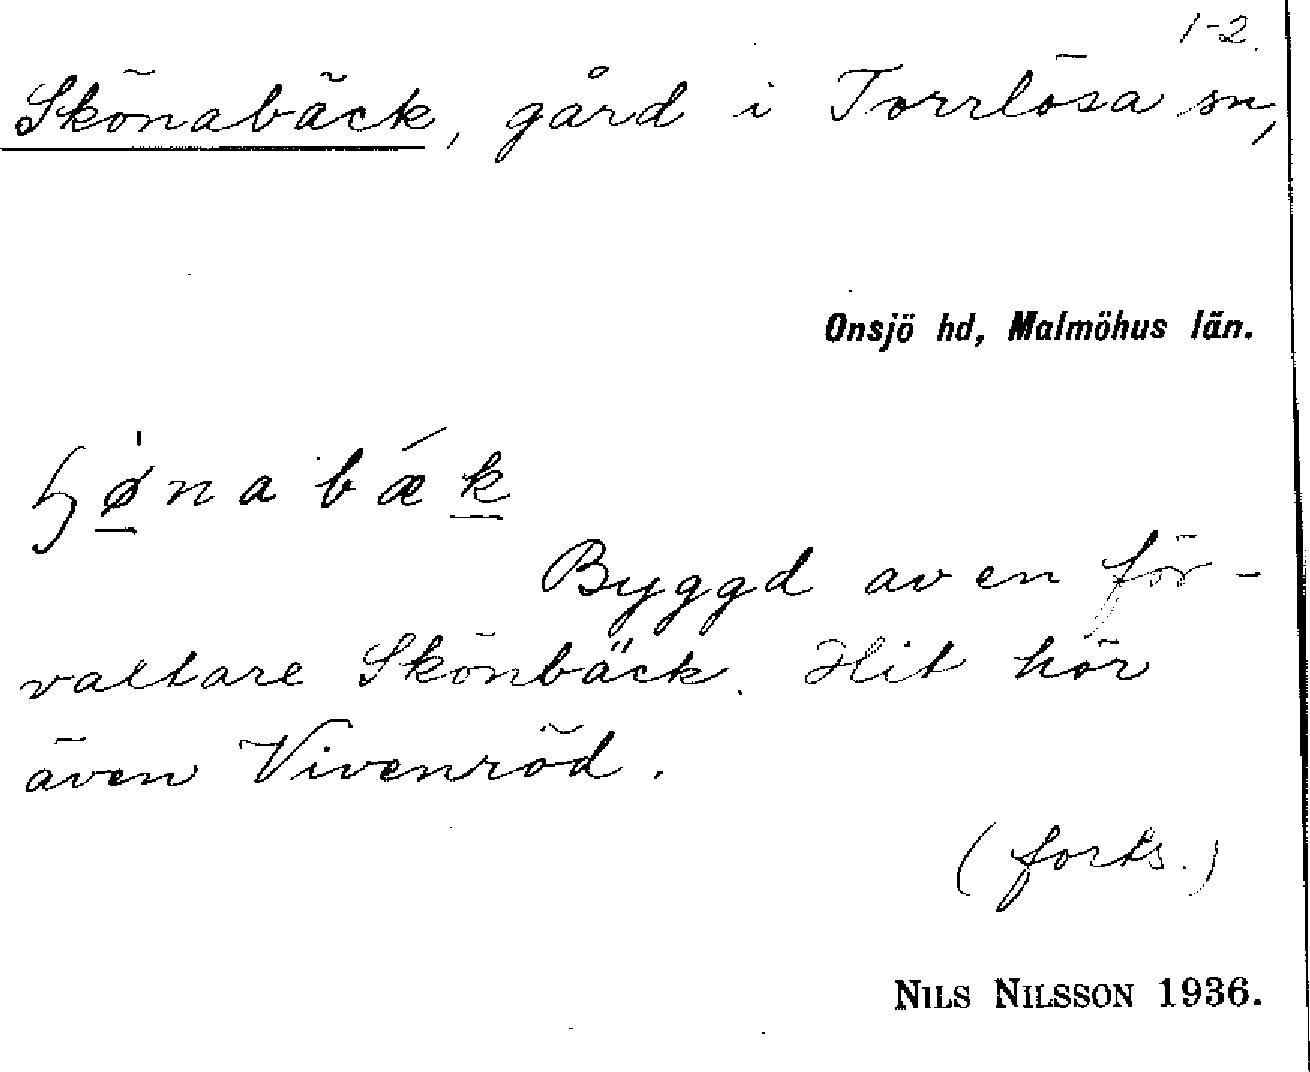 1-2.
Skönabäck, gård i Torrlösa sn,
Onsjö hd, Malmöhus län.
ɧǿ̠nabǽk̠
Byggd av en för-
valtare Skönbäck. Hit hör
även Vivenröd.
(forts.)
NILS NILSSON 1936.